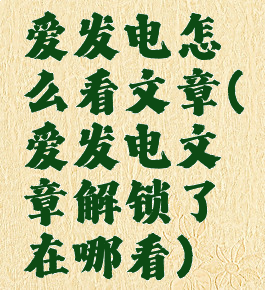 爱发电怎
么看文章(
爱发电文
章解锁了
在哪看)